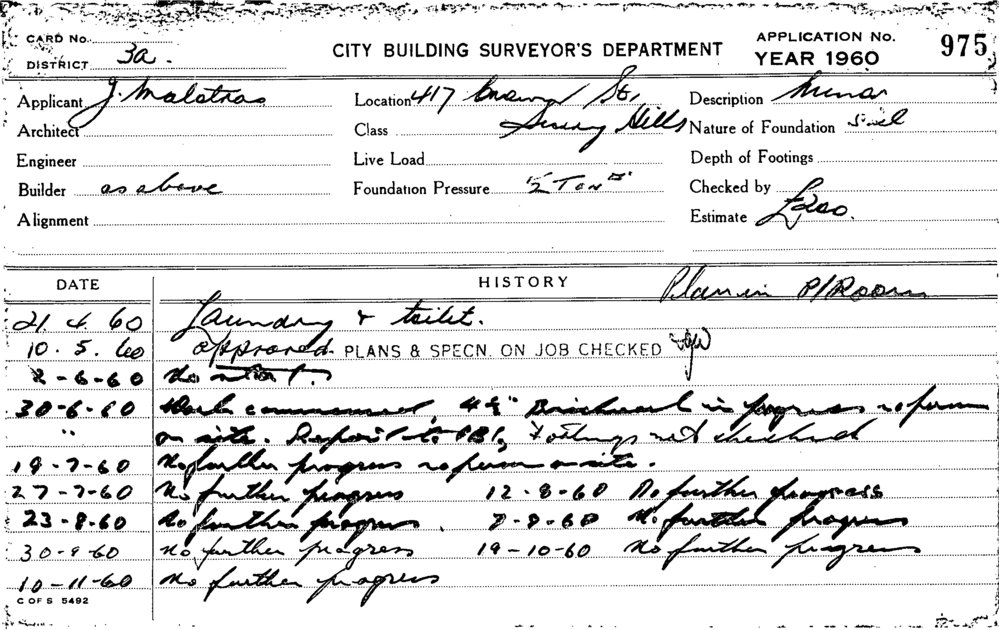 CARD No.
DISTRICT 3a.
CITY BUILDING SURVEYOR'S DEPARTMENT
APPLICATION No.
YEAR 1960
975
Applicant J. Malatras
Location 417 Crown St,
Surry Hills
Description Minor
Architect
Class
Nature of Foundation Soil
Engineer
Live Load
Depth of Footings
Builder as above
Foundation Pressure ½ Ton
Checked by
Alignment
Estimate £200.
DATE
HISTORY
Plan in P/Room
21. 4. 60 Laundry & toilet.
10. 5. 60 approved. PLANS & SPECN. ON JOB CHECKED
2-6-60 No start.
30-6-60 Work commenced, 4½" Brickwork in progress no person
" on site. Report to Footings not checked
19-7-60 No further progress no person on site.
27-7-60 No further progress 12-8-60 No further progress
23-8-60 No further progress. 7-9-60 No further progress
30-9-60 No further progress 19-10-60 No further progress
10-11-60 No further progress
C OF S 5492